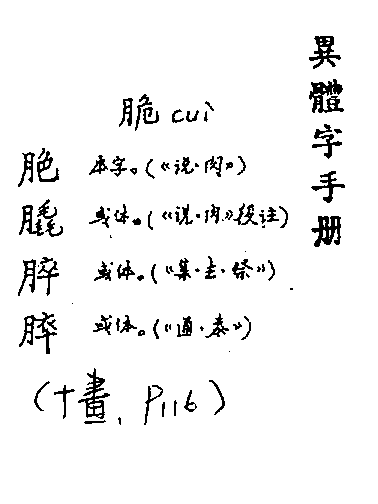 異體字手册
脆 cuì
脃 本字。(《说·肉》)
膬 或体。(《说·肉》注)
脺 或体。(《集·去·祭》)
或体。(《通·泰》)
(十畫, P116)